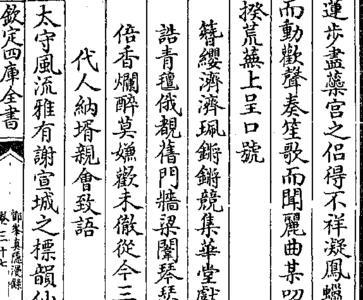 蓮步盡蘂宮之侶得不祥凝鳳蠟
而動歡聲奏笙歌而聞麗曲某
揆荒蕪上呈口號
簪纓濟濟珮鏘鏘競集華堂獻
誥青氊俄覩舊門牆梁闈琴琴
倍香爛醉莫嫌歡未徹從今三
代人納壻親會致語
太守風流雅有謝宣城之標韻仙
欽定四庫全書
鄮峯真隱漫錄
卷三十七